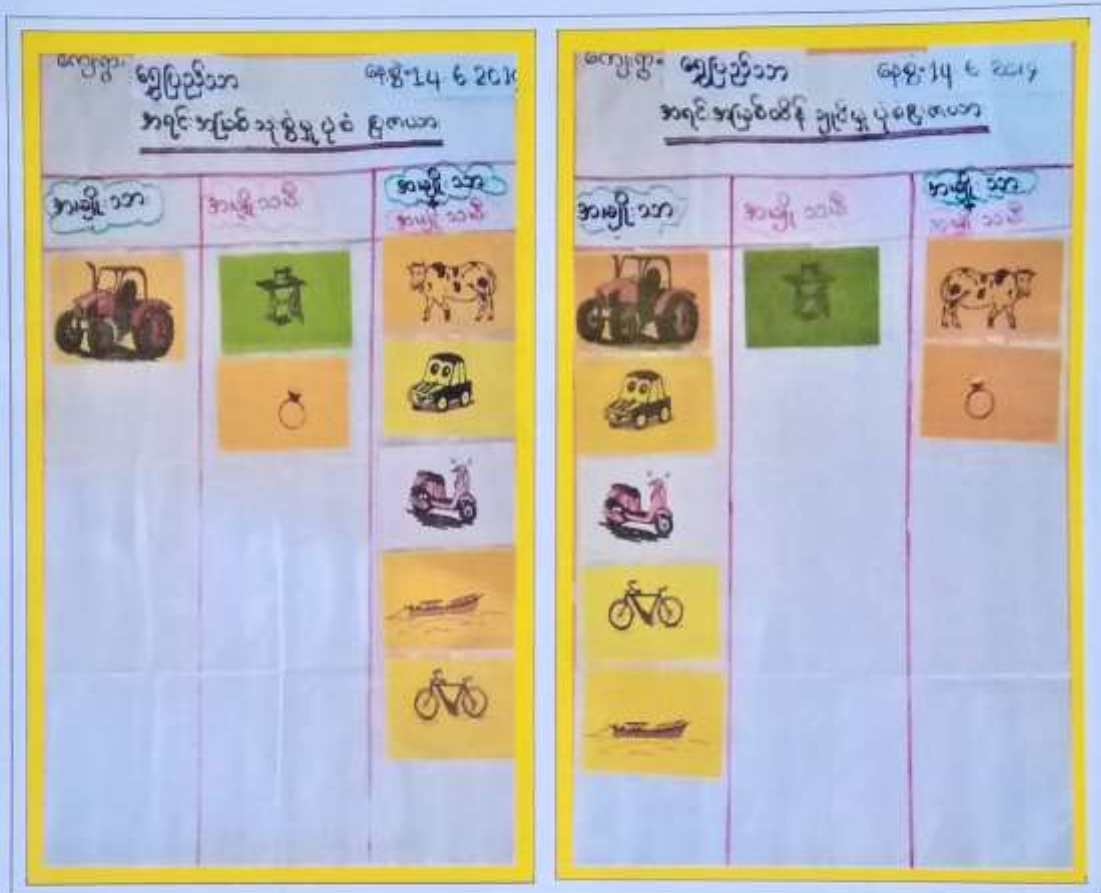 ကျေးရွာ- ရွှေပြည်သာ နေ့စွဲ-14 6 2019
အရင်းအမြစ်သုံးစွဲမှု ပုံစံ ဇယား
အမျိုးသား
အမျိုးသမီး
အမျိုးသား
+
အမျိုးသမီး
ကျေးရွာ- ရွှေပြည်သာ နေ့စွဲ-14 6 2019
အရင်းအမြစ်ထိန်းချုပ်မှု ပုံစံ ဇယား
အမျိုးသား
အမျိုးသမီး
အမျိုးသား
+
အမျိုးသမီး